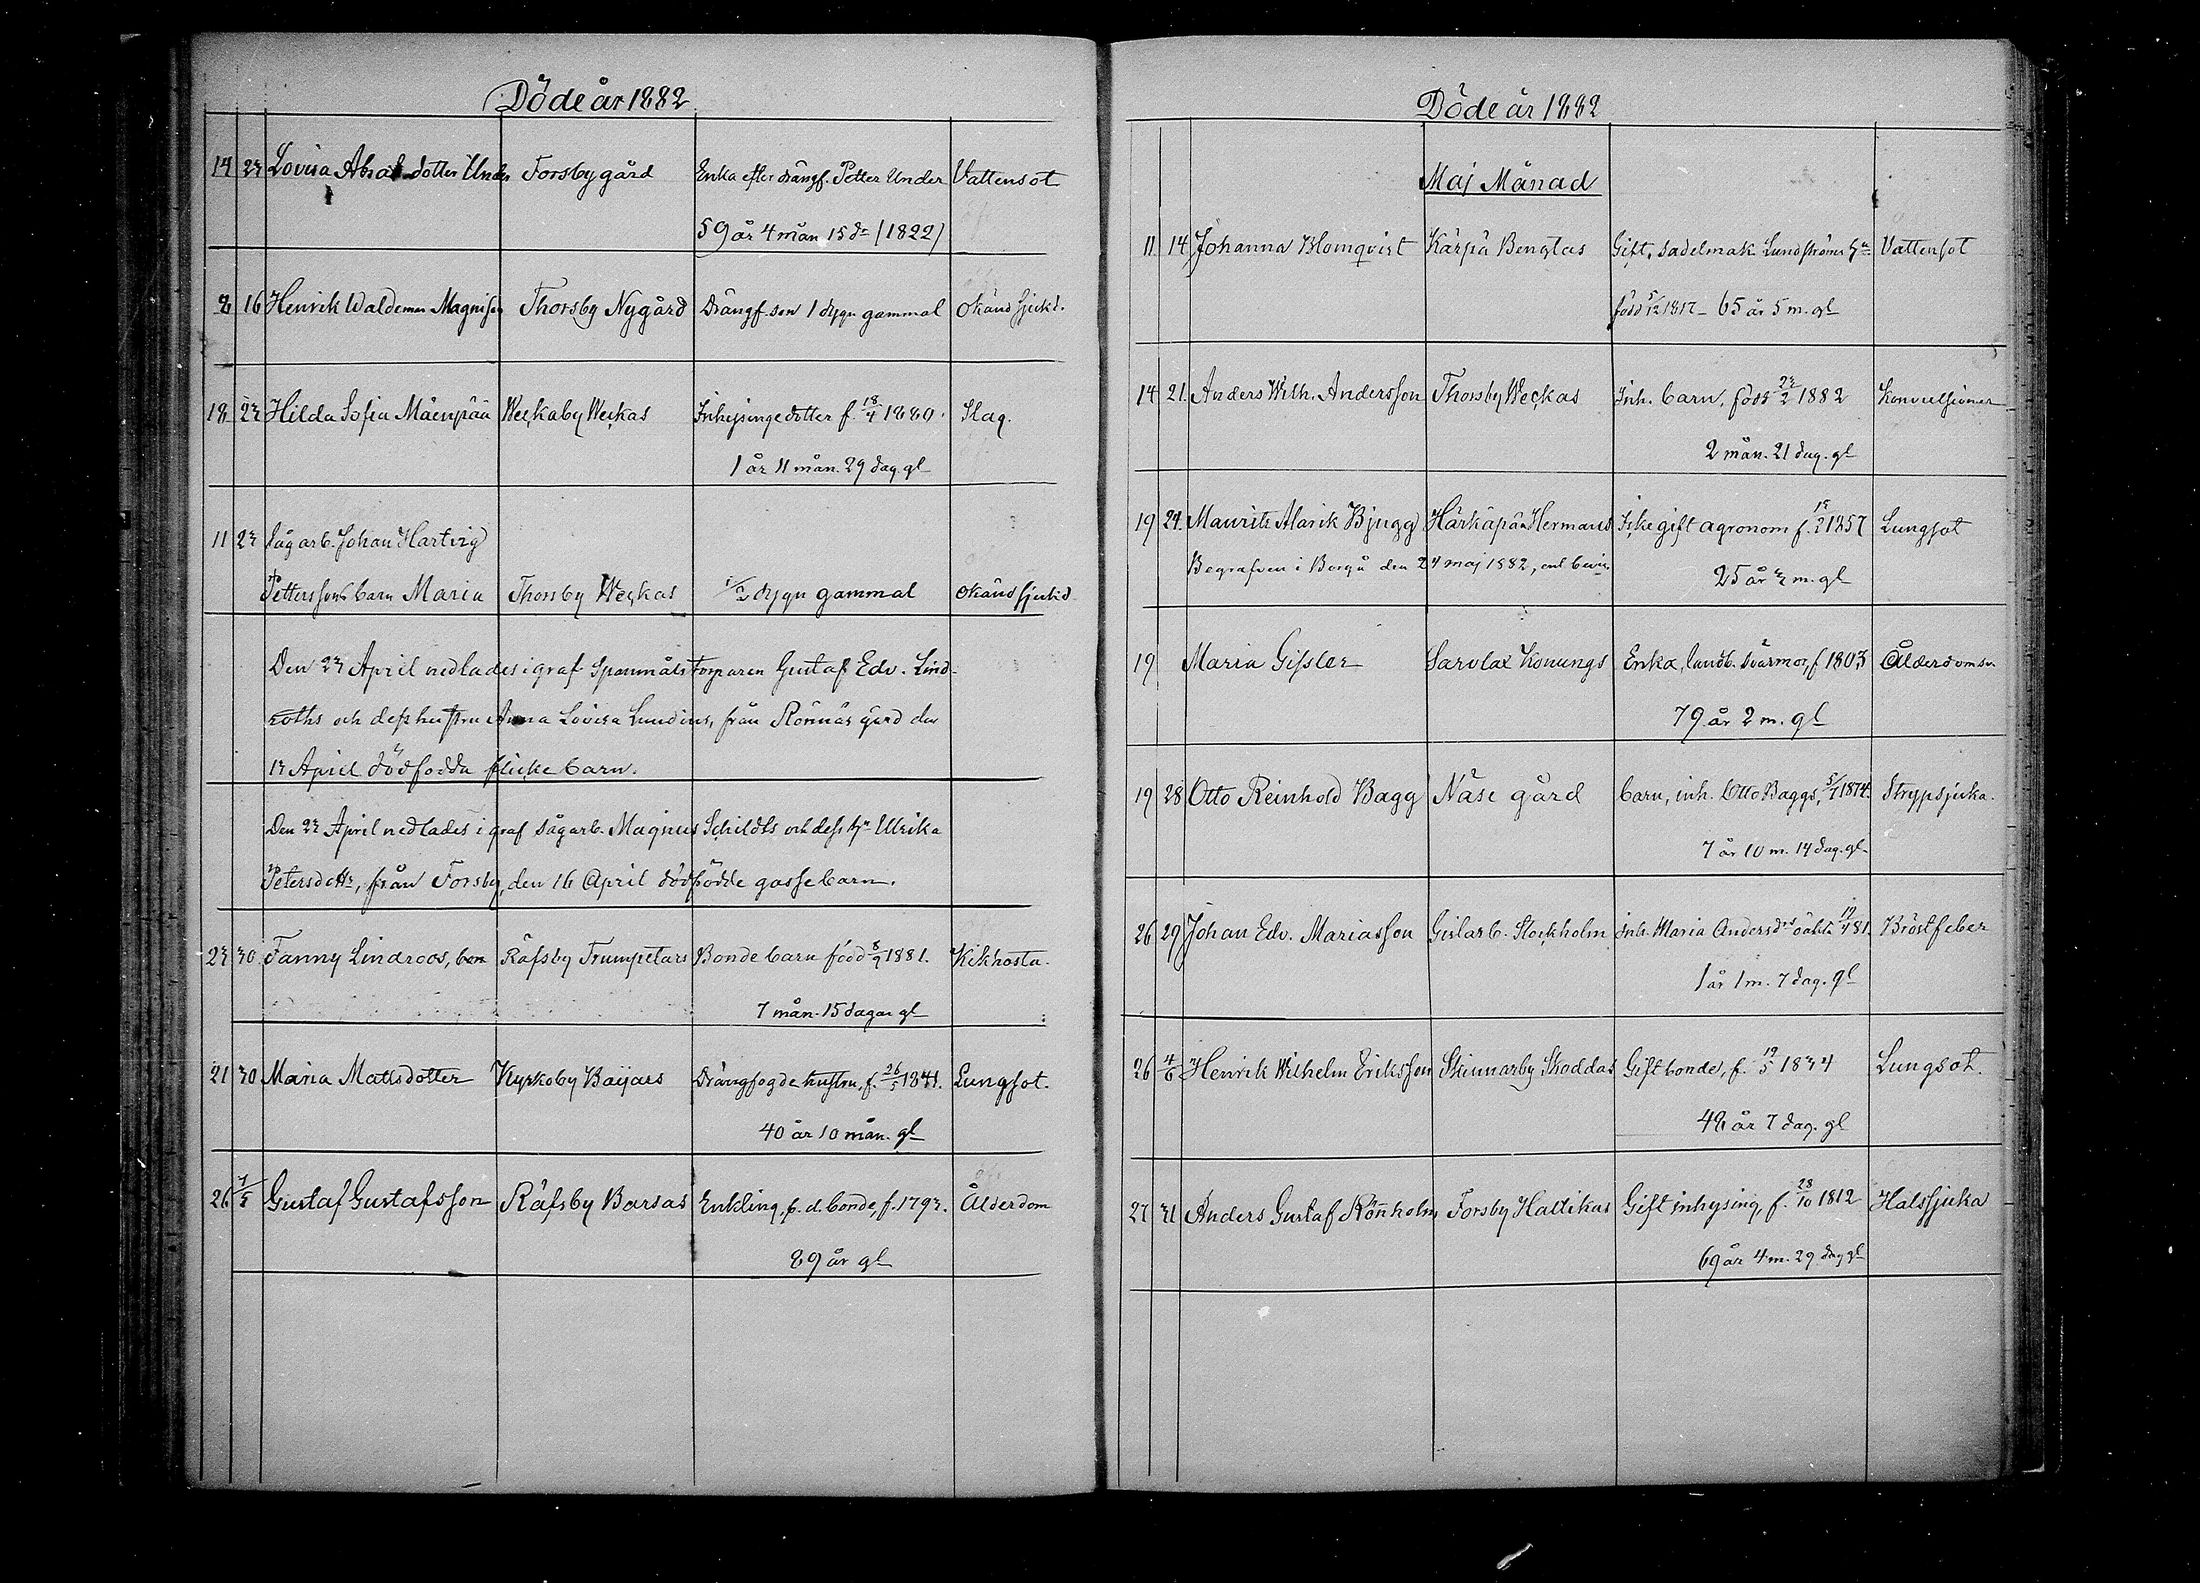 Döde år 1882
14 23 Lovisa Absal.dotter Under Forsby gård Enka efter drängf. Petter Under Vattensot
59 år 4 mån 15 d. (1822)
8 16 Henrik Waldemar Magnisson Thorsby Nygård Drängf. son 1 dygn gammal okänd sjukd.
18 23 Hilda Sofia Mäenpää Weckaby Weckas Inhysinge dotter f. 18/4 1880. Slag.
1 år 11 mån. 29 dag. gl
11 23 Sågarb. Johan Hartvig
Petterssons barn Maria Thorsby Weckas 1/2 dygn gammal okänd sjukd
Den 23 April nedlades i graf Spanmåls Torparen Gustaf Edv. Lind-
roths och dess hustru Anna Lovisa Lundins, från Rönnäs gård den
13 April dödfödda flickebarn.
Den 23 April nedlades i graf sågarb. Magnus Schildts och dess hu Ulrika
Petersdottr, från Forsby, den 16 April dödfödde gossebarn.
23 30 Fanny Lindroos, Räfsby Trumpetars Bonde barn född 8/9 1881. Kikhosta.
7 mån. 15 dagar gl
21 30 Maria Mattsdotter Kyrkoby Baijars Drängfogde hustru, f. 26/5 1841. Lungsot.
40 år 10 mån. gl
26 7/5 Gustaf Gustafsson Räfsby Barsas Enkling, f. d. bonde, f. 1793. Ålderdom
89 år gl
Döde år 1882
Maj Månad
11 14 Johanna Blomqvist Kärpä Bengtas Gift. Sadelmak. Lundströms hu Vattensot
född 5/12 1817 – 65 år 5 m. gl
14 21. Anders Wilh. Andersson Thorsby Weckas Inh. barn, född 23/2 1882 Konvulsioner
2 mån. 21 dag. gl
19 24. Mauritz Alarik Bjugg Härkäpää Hermans Icke gift agronom f. 1857 Lungsot
Begrafven i Borgå den 24 maj 1882, enl bevis. 25 år m. gl
19 Maria Gissler Sarvlax Konungs Enka, landb. svärmor, f 1803 Ålderdomsv
79 år 2 m. gl
19 28 Otto Reinhold Bagg Näse gård barn, inh. Otto Baggs, 5/7 1874. Strypsjuka.
7 år 10 m. 14 dag. gl.
26 29 Johan Edv. Mariasson Gislarb. Stockholm Inh. Maria Andersd. oäkta 19/4 81. Bröstfeber
1 år 1 m. 7 dag. gl
26 4/6 Henrik Wilhelm Eriksson Skinnarby Skoddas Gift bonde, f. 19/5 1834 Lungsot.
48 år 7 dag. gl
27 31 Anders Gustaf Rönnholm Forsby Hattikas Gift inhysing, f. 28/10 1812 Halssjuka
69 år 4 m. 29 dag gl